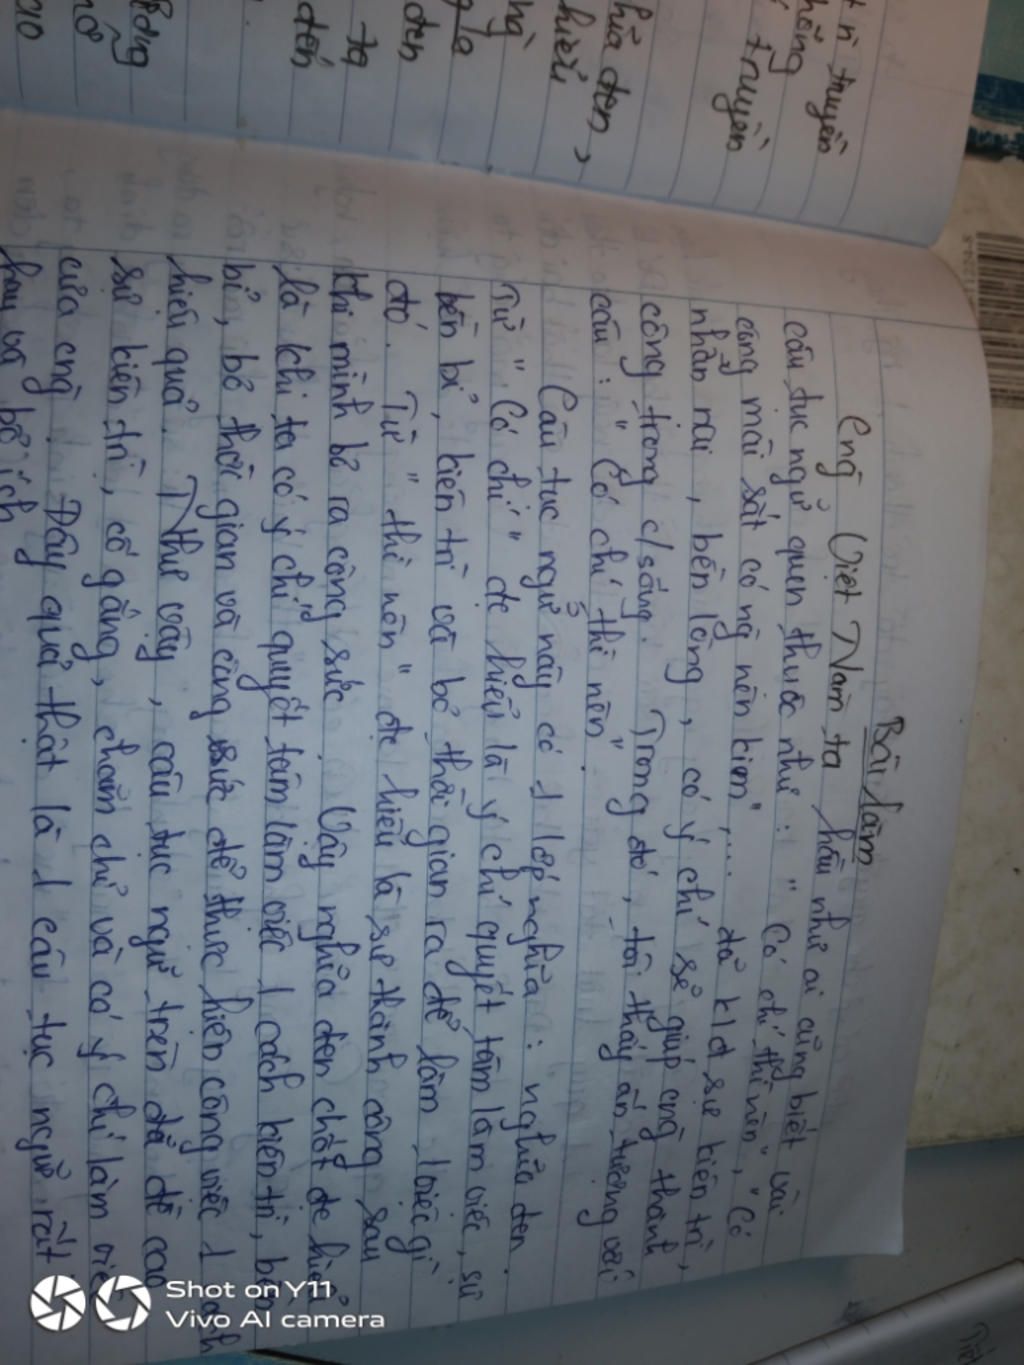 t nì truyền
hống
truyền
hĩa đen,
hiểu
ng
đen
ta
đến
động
Bài làm
Cng Việt Nam ta hầu như ai cũng biết vài
câu tục ngữ quen thuộc như: " Có chí thì nên", " Có
công mài sắt có ng nên kim", .... đã kđ sự kiên trì,
nhẫn nại, bền lòng, có ý chí sẽ giúp cng thành
công trong c/sống. Trong đó, tôi thấy ấn tượng với
câu: " Có chí thì nên".
Câu tục ngữ này có 1 lớp nghĩa: nghĩa đen.
Từ " Có chí" đc hiểu là ý chí quyết tâm làm việc, sự
bền bỉ, kiên trì và bỏ thời gian ra để làm 1 việc gì
đó. Từ " thì nên" đc hiểu là sự thành công sau
khi mình bỏ ra công sức. Vậy nghĩa đen chốt đc hiểu
là khi ta có ý chí quyết tâm làm việc 1 cách kiên trì, bền
bỉ, bỏ thời gian và công sức để thực hiện công việc 1 cách
hiệu quả. Như vậy, câu tục ngữ trên đã đề cao
sự kiên trì, cố gắng, chăm chỉ và có ý chí làm việc
của cng. Đây quả thật là 1 câu tục ngữ rất
hay và bổ ích
Shot on Y11
Vivo AI camera